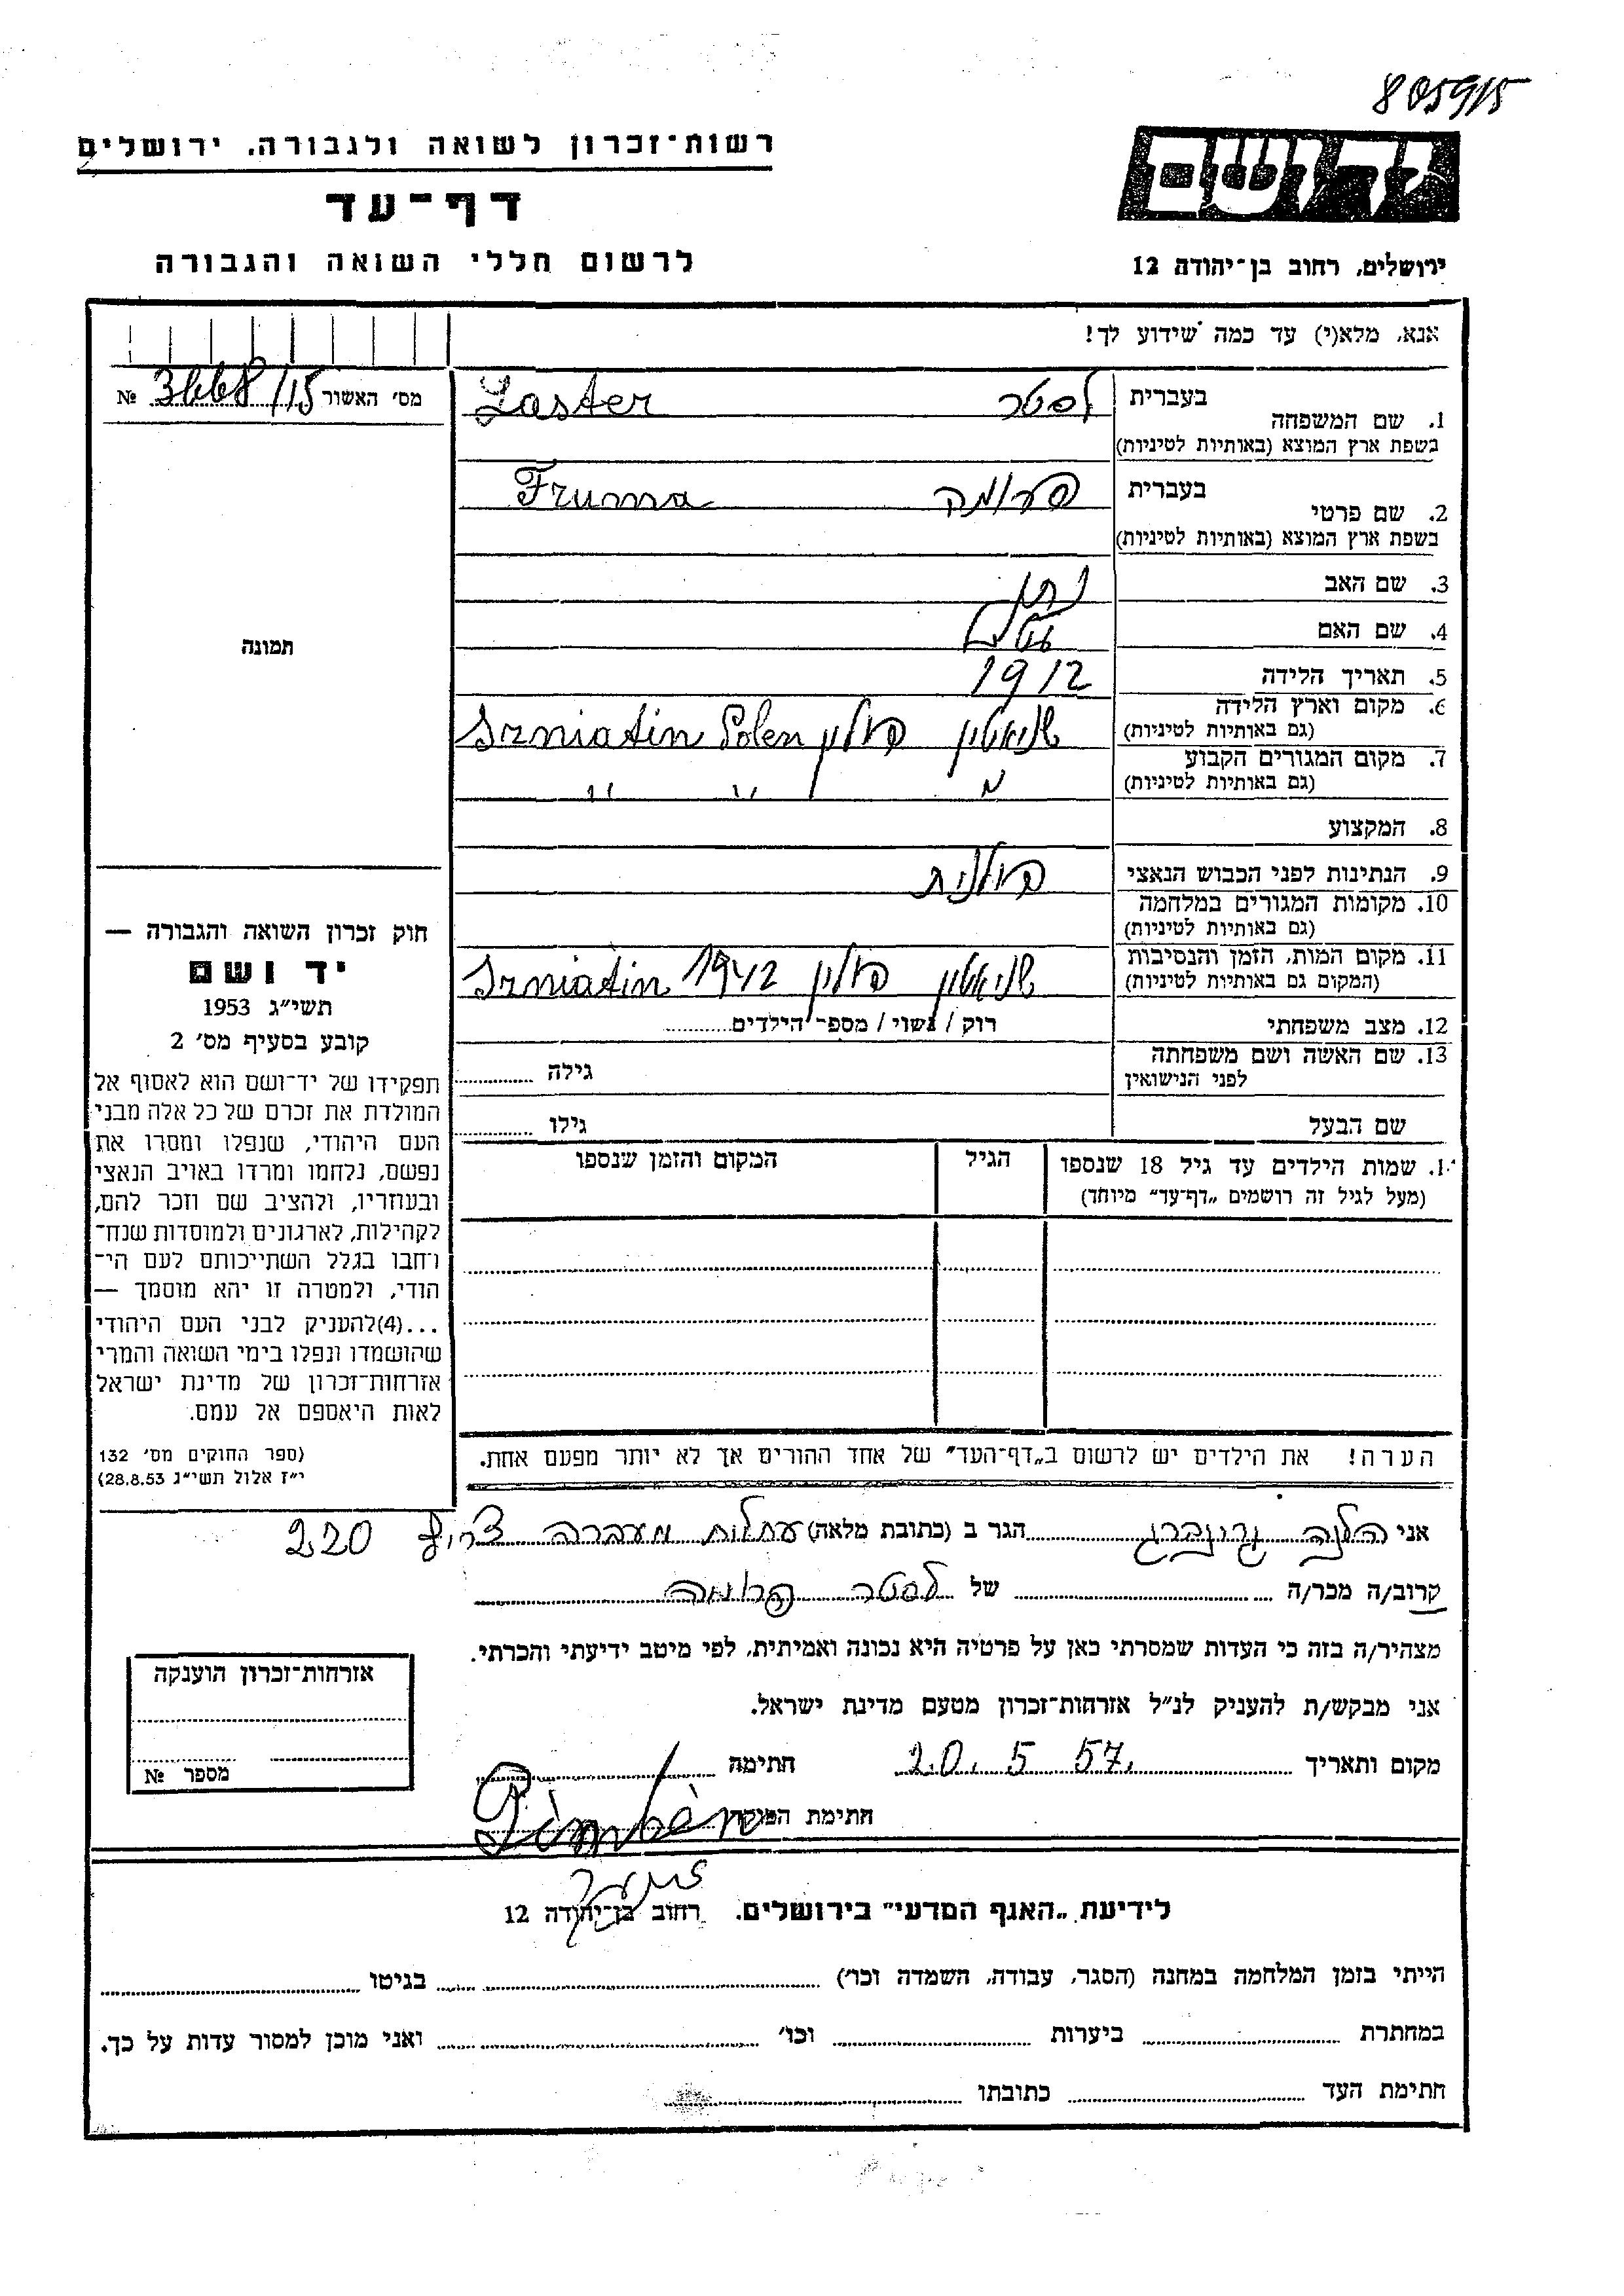 805915
רשות־זכרון לשואה ולגבורה. ירושלים
דף־עד
לרשום חללי השואה והגבורה
יד ושם
ירושלים, רחוב בן־יהודה 12
אנא, מלא(י) עד כמה שידוע לך!
מס׳ האשור /15 №
בעברית לסטר Laster
1. שם המשפחה
בשפת ארץ המוצא (באותיות לטיניות)
בעברית פרומה Fruma
2. שם פרטי
בשפת ארץ המוצא (באותיות לטיניות)
3. שם האב נתן
4. שם האם
5. תאריך הלידה 1912
6. מקום וארץ הלידה שניאטין פולין Szniatin Polen
(גם באותיות לטיניות)
7. מקום המגורים הקבוע
(גם באותיות לטיניות)
8. המקצוע
9. הנתינות לפני הכבוש הנאצי פולנית
10. מקומות המגורים במלחמה
(גם באותיות לטיניות)
11. מקום המות, הזמן והנסיבות שניאטין פולין 1942 Szniatin
(המקום גם באותיות לטיניות)
12. מצב משפחתי רוק / נשוי / מספר הילדים
13. שם האשה ושם משפחתה גילה
לפני הנישואין
שם הבעל גילו
תמונה
חוק זכרון השואה והגבורה —
יד ושם
תשי״ג 1953
קובע בסעיף מס׳ 2
תפקידו של יד־ושם הוא לאסוף אל
המולדת את זכרם של כל אלה מבני
העם היהודי, שנפלו ומסרו את
נפשם, נלחמו ומרדו באויב הנאצי
ובעוזריו, ולהציב שם וזכר להם,
לקהילות, לארגונים ולמוסדות שנח־
רחבו בגלל השתייכותם לעם הי־
הודי, ולמטרה זו יהא מוסמך —
...(4)להעניק לבני העם היהודי
שהושמדו ונפלו בימי השואה והמרי
אזרחות־זכרון של מדינת ישראל
לאות היאספם אל עמם.
(ספר החוקים מס׳ 132
י״ז אלול תשי״ג 28.8.53)
1. שמות הילדים עד גיל 18 שנספו הגיל המקום והזמן שנספו
(מעל לגיל זה רושמים „דף־עד״ מיוחד)
הערה! את הילדים יש לרשום ב„דף־העד״ של אחד ההורים אך לא יותר מפעם אחת.
אני הלנה גרינברג הגר ב (כתובת מלאה) עתלית מעברה צריף 220
קרוב/ה מכר/ה של לסטר פרומה
מצהיר/ה בזה כי העדות שמסרתי כאן על פרטיה היא נכונה ואמיתית, לפי מיטב ידיעתי והכרתי.
אני מבקש/ת להעניק לנ״ל אזרחות־זכרון מטעם מדינת ישראל.
מקום ותאריך 20. 5 57. חתימה
חתימת הפוקד
אזרחות־זכרון הוענקה
מספר №
לידיעת „האגף המדעי״ בירושלים. רחוב בן־יהודה 12
הייתי בזמן המלחמה במחנה (הסגר, עבודה, השמדה וכו׳) בגיטו
במחתרת ביערות וכו׳ ואני מוכן למסור עדות על כך.
חתימת העד כתובתו